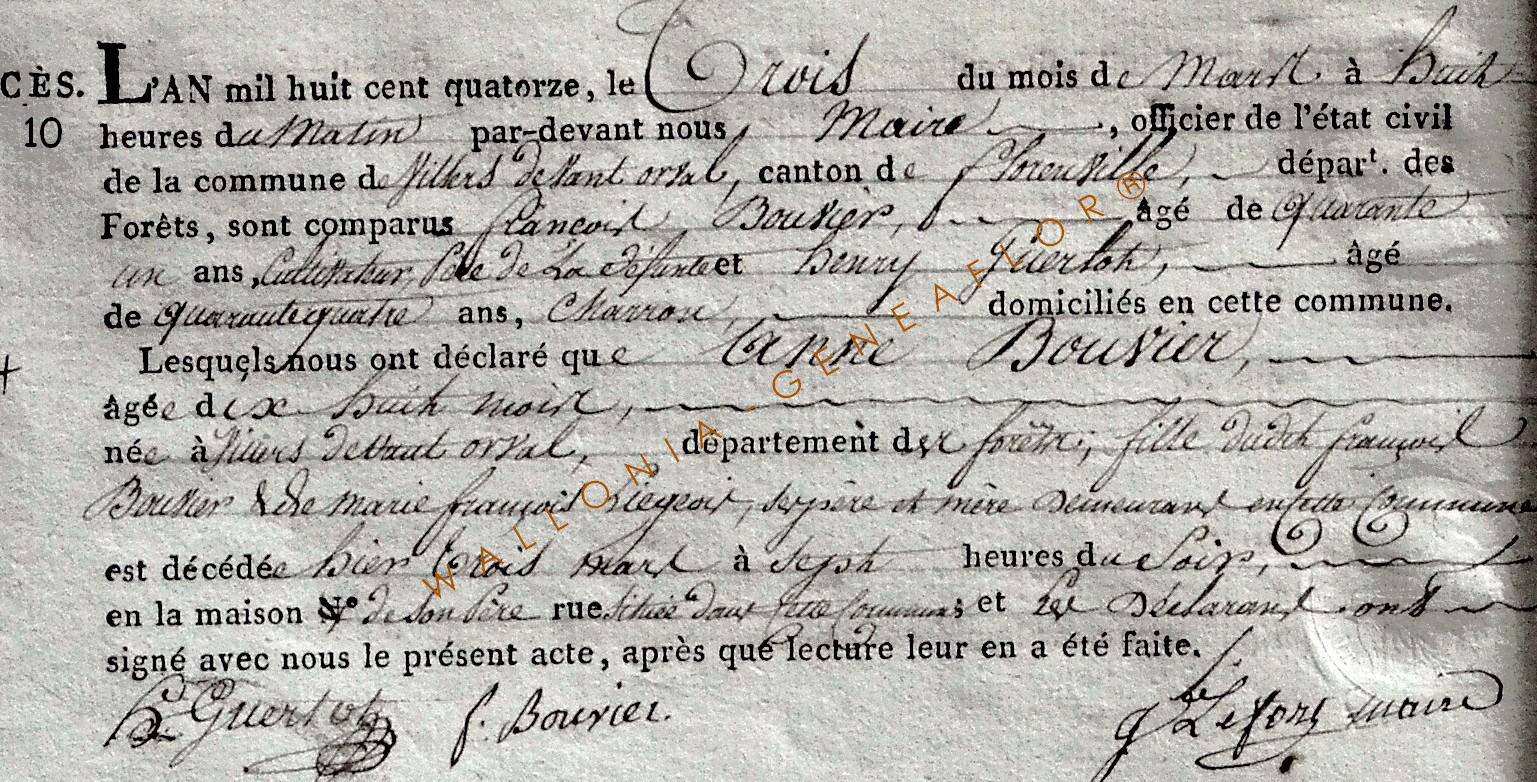 CÈS. L'AN mil huit cent quatorze, le Trois du mois de Mars à huit
10 heures du Matin par-devant nous, Maire, officier de l'état civil
de la commune de Villers devant orval, canton de florenville, départ. des
Forêts, sont comparus françois Bouvier, âgé de quarante
un ans, Cultivateur, Père de La défunte et henry Guerlot, âgé
de quarantequatre ans, Charron, domiciliés en cette commune.
Lesquels nous ont déclaré que anne Bouvier,
âgée dix huit mois,
née à Villers devant orval, département des forêts, fille dudit françois
Bouvier & de marie françois Liegeois, ses père et mère demeurant en cette Commune
est décédée hier trois mars à sept heures du Soir,
en la maison N° de son Père rue située dans cette Commune; et les Déclarans ont
signé avec nous le présent acte, après que lecture leur en a été faite.
h Guerlot f. Bouvier. Lefort maire
WALLONIA-GENEAFLOR®